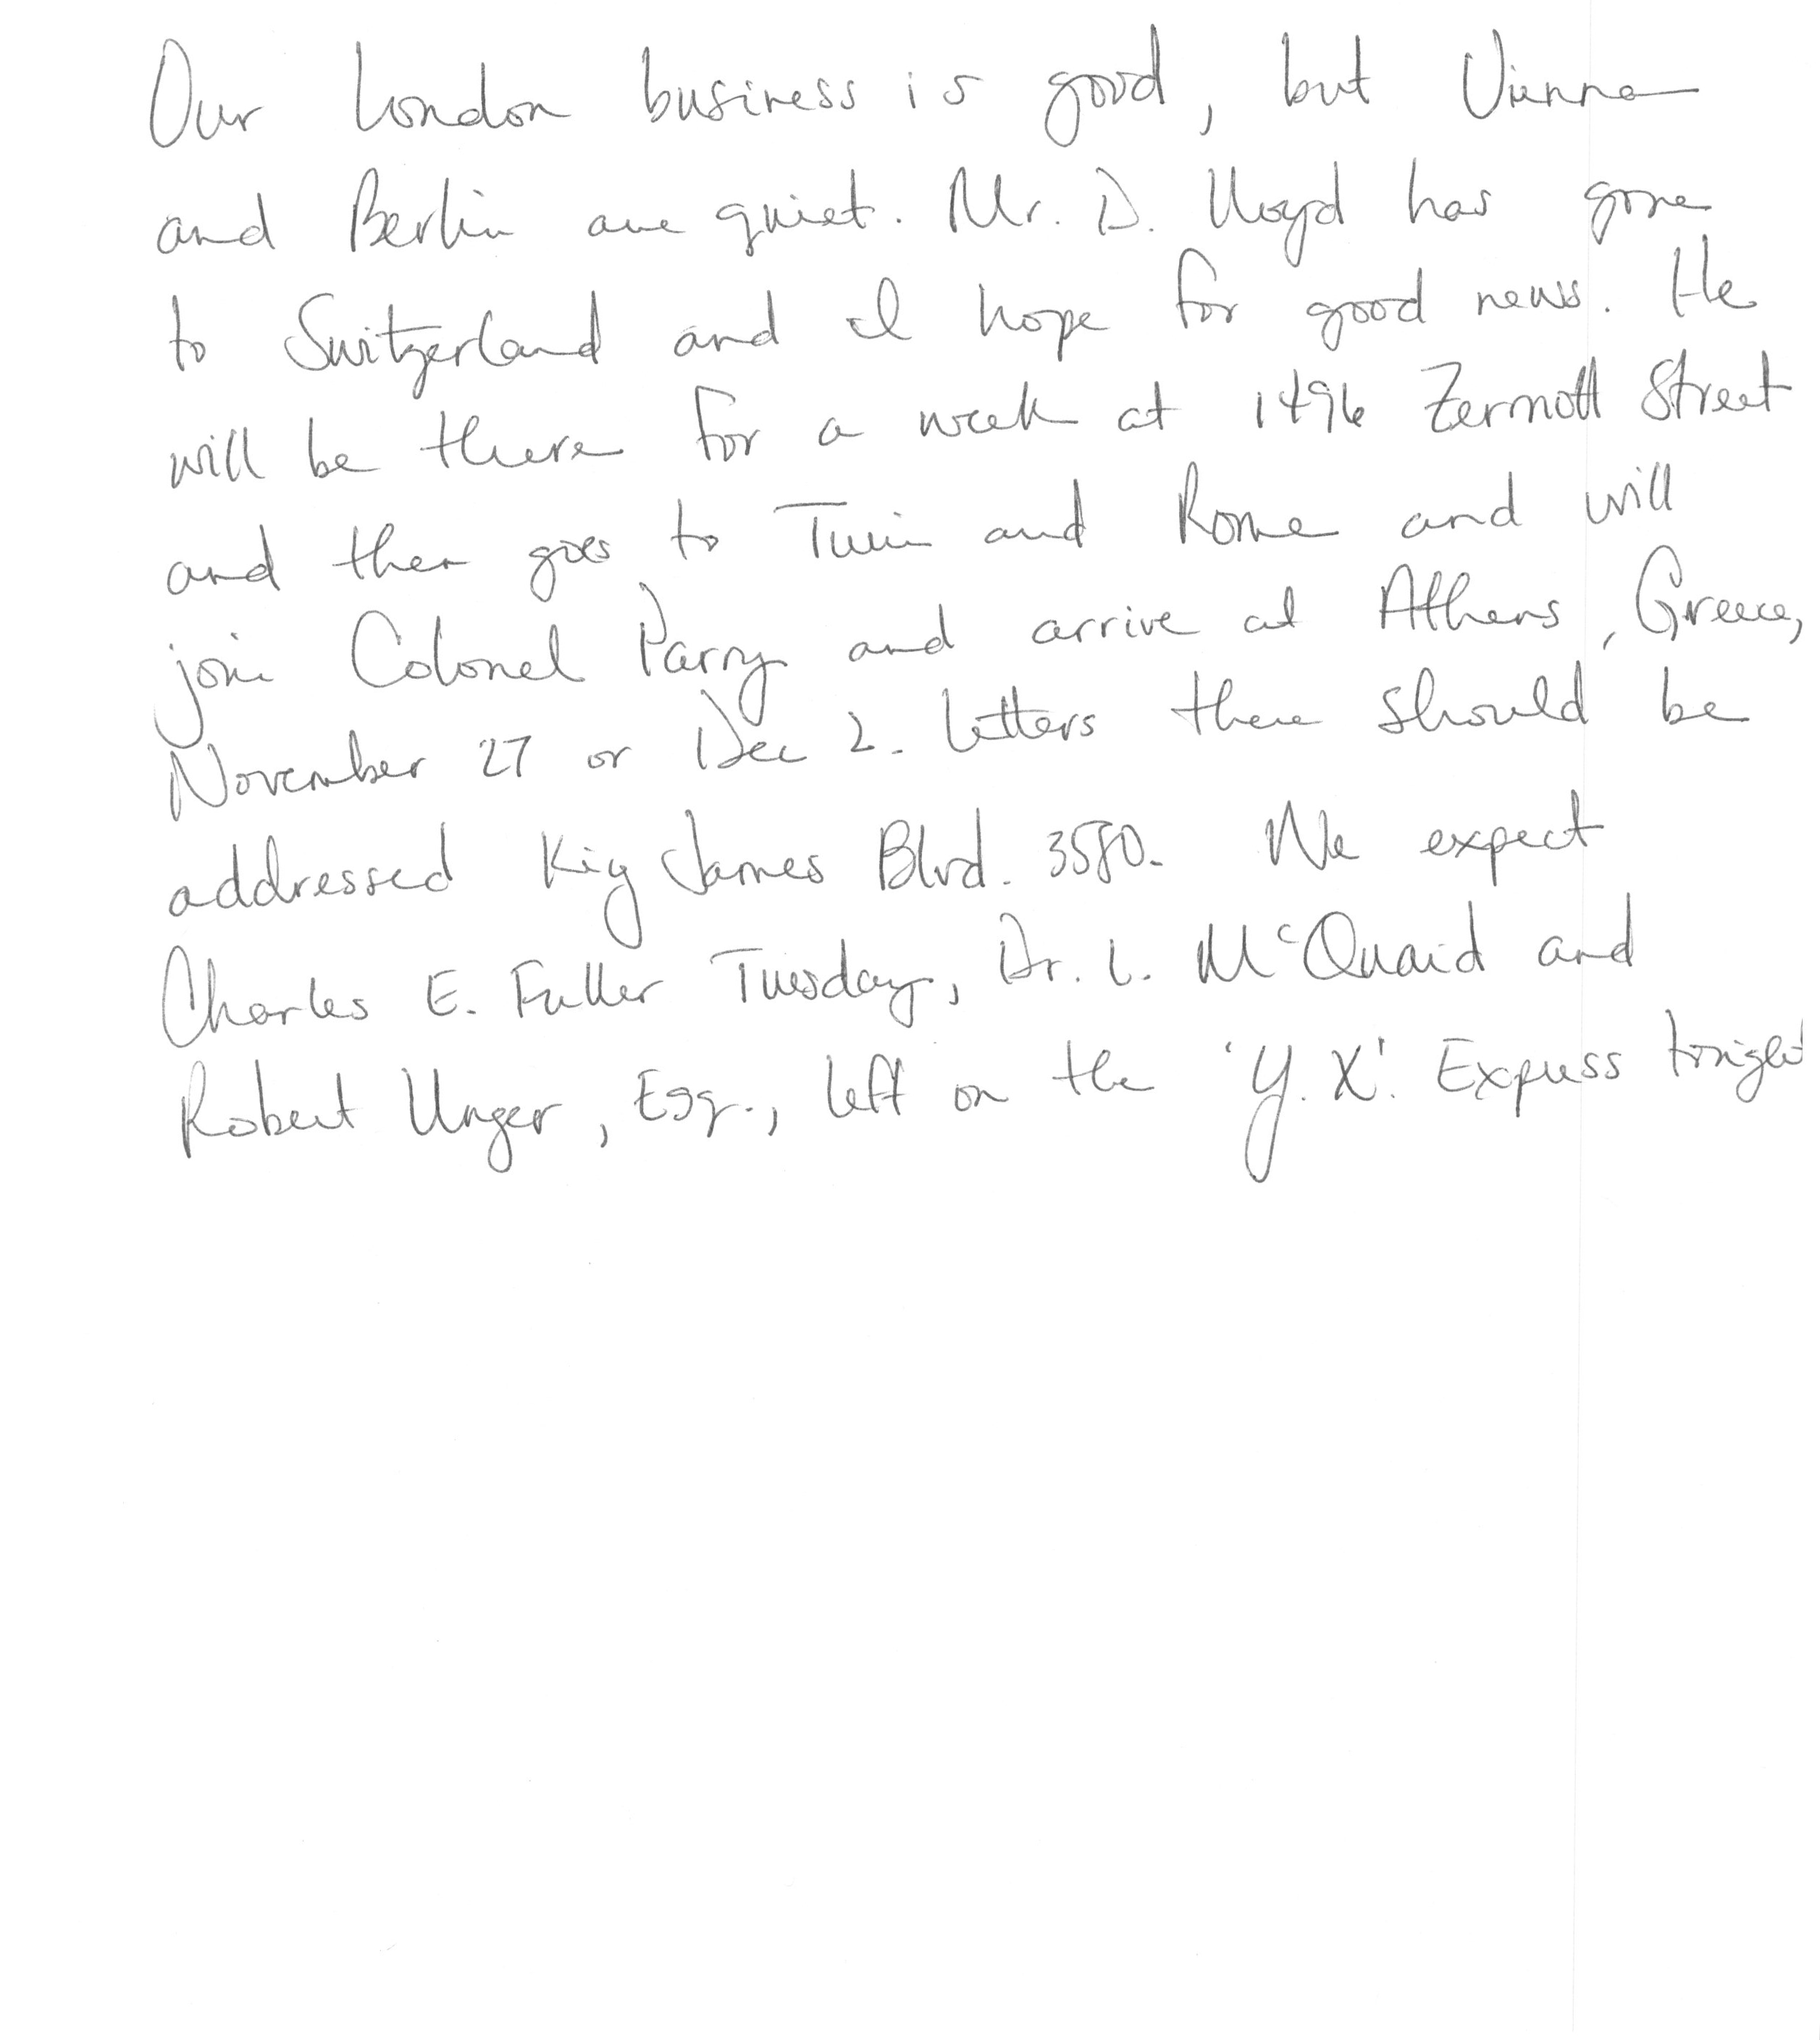 Our London business is good, but Vienna
and Berlin are quiet. Mr. D. Lloyd has gone
to Switzerland and I hope for good news. He
will be there for a week at 1496 Zermott Street
and then goes to Turin and Rome and will
join Colonel Parry and arrive at Athens, Greece,
November 27 or Dec 2. Letters there should be
addressed King James Blvd. 3580. We expect
Charles E. Fuller Tuesday, Dr. L. McQuaid and
Robert Unger, Esq., left on the 'Y.X.' Express tonight